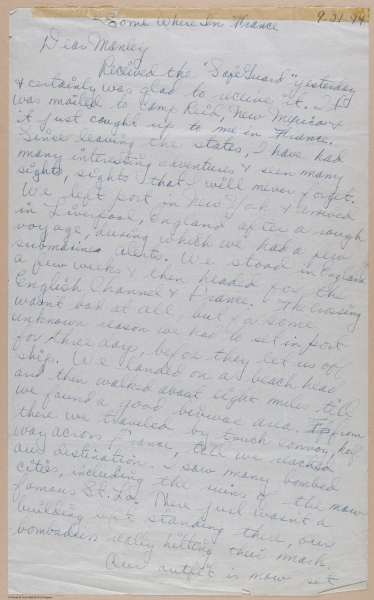 Some Where In France
9-21-44
Dear Manley
Received the "Safe Guard" yesterday
& certainly was glad to receive it. It
was mailed to Camp Reid, New Mexico &
it just caught up to me in France.
Since leaving the states, I have had
many interesting adventures & seen many
sights, sights that I will never forget.
We left port in New York & arrived
in Liverpool, England after a rough
voyage, during which we had a few
submarine alerts. We stood in England
a few weeks & then headed for the
English Channel & France. The crossing
wasn't bad at all, but for some
unknown reason we had to set in port
for three days, before they let us off
ship. We landed on a beach head
and then walked about eight miles till
we found a good bivouac area. From
there we traveled by truck convoy, half
way across France, till we reached
our destination. I saw many bombed
cities, including the ruins of the now
famous St. Lo. There just wasn't a
building left standing there, our
bombadiers really hitting their mark.
Our outfit is now set